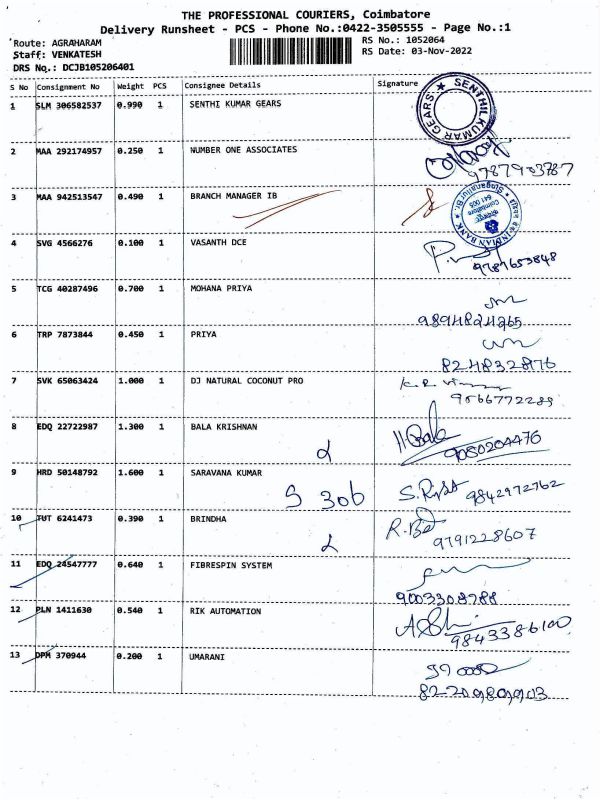 THE PROFESSIONAL COURIERS, Coimbatore
Delivery Runsheet - PCS - Phone No.:0422-3505555 - Page No.:1
Route: AGRAHARAM RS No.: 1052064
Staff: VENKATESH RS Date: 03-Nov-2022
DRS No.: DCJB105206401
S No Consignment No Weight PCS Consignee Details Signature
1 SLM 306582537 0.990 1 SENTHI KUMAR GEARS
★ SENTHILKUMAR GEARS
2 MAA 292174957 0.250 1 NUMBER ONE ASSOCIATES
9787903787
3 MAA 942513547 0.490 1 BRANCH MANAGER IB
INDIAN BANK Singanallur Br. Coimbatore 641 005
4 SVG 4566276 0.100 1 VASANTH DCE
9787653848
5 TCG 40287496 0.700 1 MOHANA PRIYA
9894824265
6 TRP 7873844 0.450 1 PRIYA
824832876
7 SVK 65063424 1.000 1 DJ NATURAL COCONUT PRO
9566772289
8 EDQ 22722987 1.300 1 BALA KRISHNAN
Bala 9080204476
9 HRD 50148792 1.600 1 SARAVANA KUMAR
S 306 9842972762
10 TUT 6241473 0.390 1 BRINDHA
9791228607
11 EDQ 24547777 0.640 1 FIBRESPIN SYSTEM
9003308788
12 PLN 1411630 0.540 1 RIK AUTOMATION
9843386100
13 DPM 370944 0.200 1 UMARANI